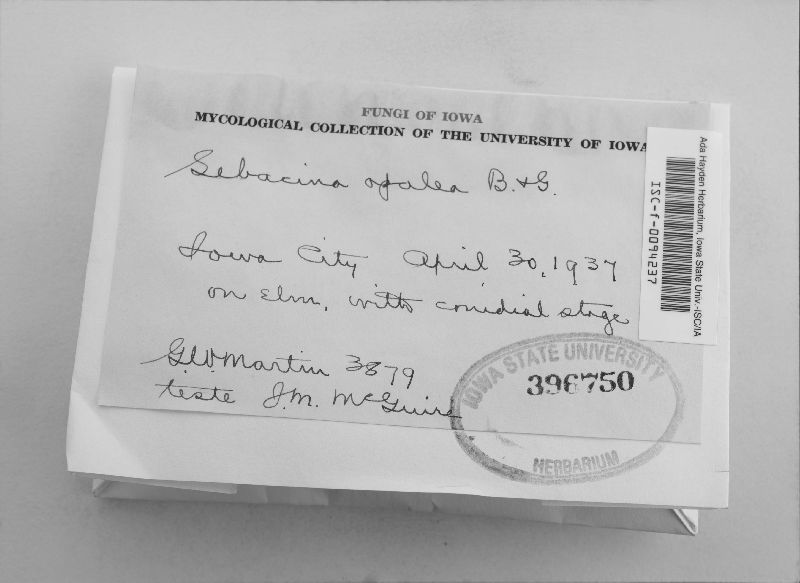 FUNGI OF IOWA
MYCOLOGICAL COLLECTION OF THE UNIVERSITY OF IOWA
Sebacina opalea B.&G.
Iowa City April 30, 1937
on elm, with conidial stage
G.W. Martin 3879
teste J.M. McGuire
IOWA STATE UNIVERSITY
396750
HERBARIUM
Ada Hayden Herbarium, Iowa State Univ.-ISC/IA
ISC-f-0094237